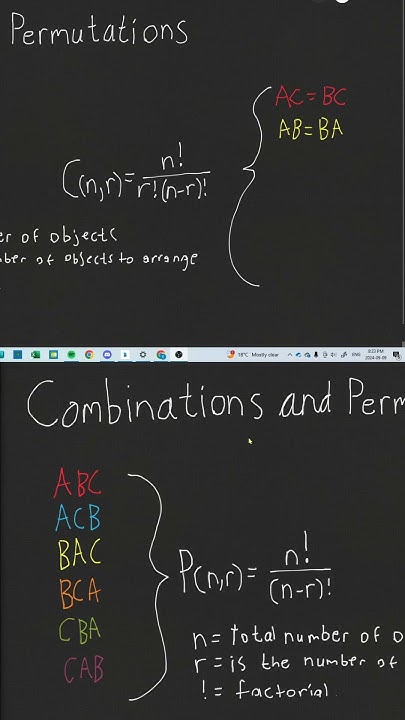 Permutations
AC = BC
AB = BA
C(n,r) = n! / r!(n-r)!
er of objects
ber of objects to arrange
18°C Mostly clear ENG 9:23 PM
2024-09-09
Combinations and Perm
ABC
ACB
BAC
BCA
CBA
CAB
P(n,r) = n! / (n-r)!
n = total number of o
r = is the number of
! = factorial